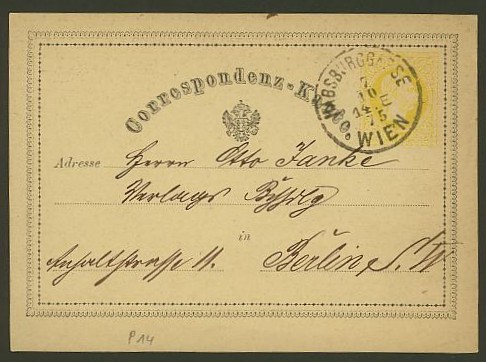 Correspondenz-Karte.
HABSBURGGASSE
7
10
14 E
75
WIEN
Adresse Herrn Otto Janke
Verlags
in
Anhaltstrasse 11. Berlin, S. W
P14